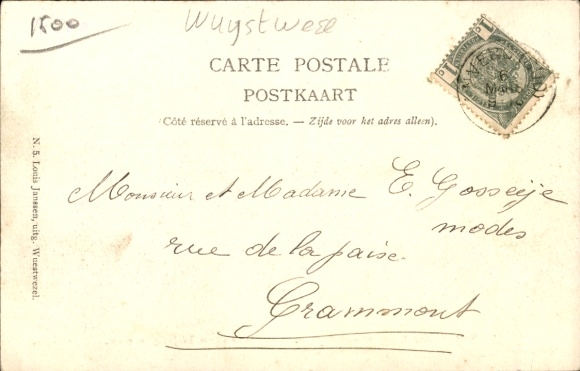 1500
Wuystwese
CARTE POSTALE
POSTKAART
(Côté réservé à l'adresse. — Zijde voor het adres alleen).
Monsieur et Madame E. Gosseije
modes
rue de la paise
Grammont
N. 5. Louis Janssen, uitg. Wuestwezel.